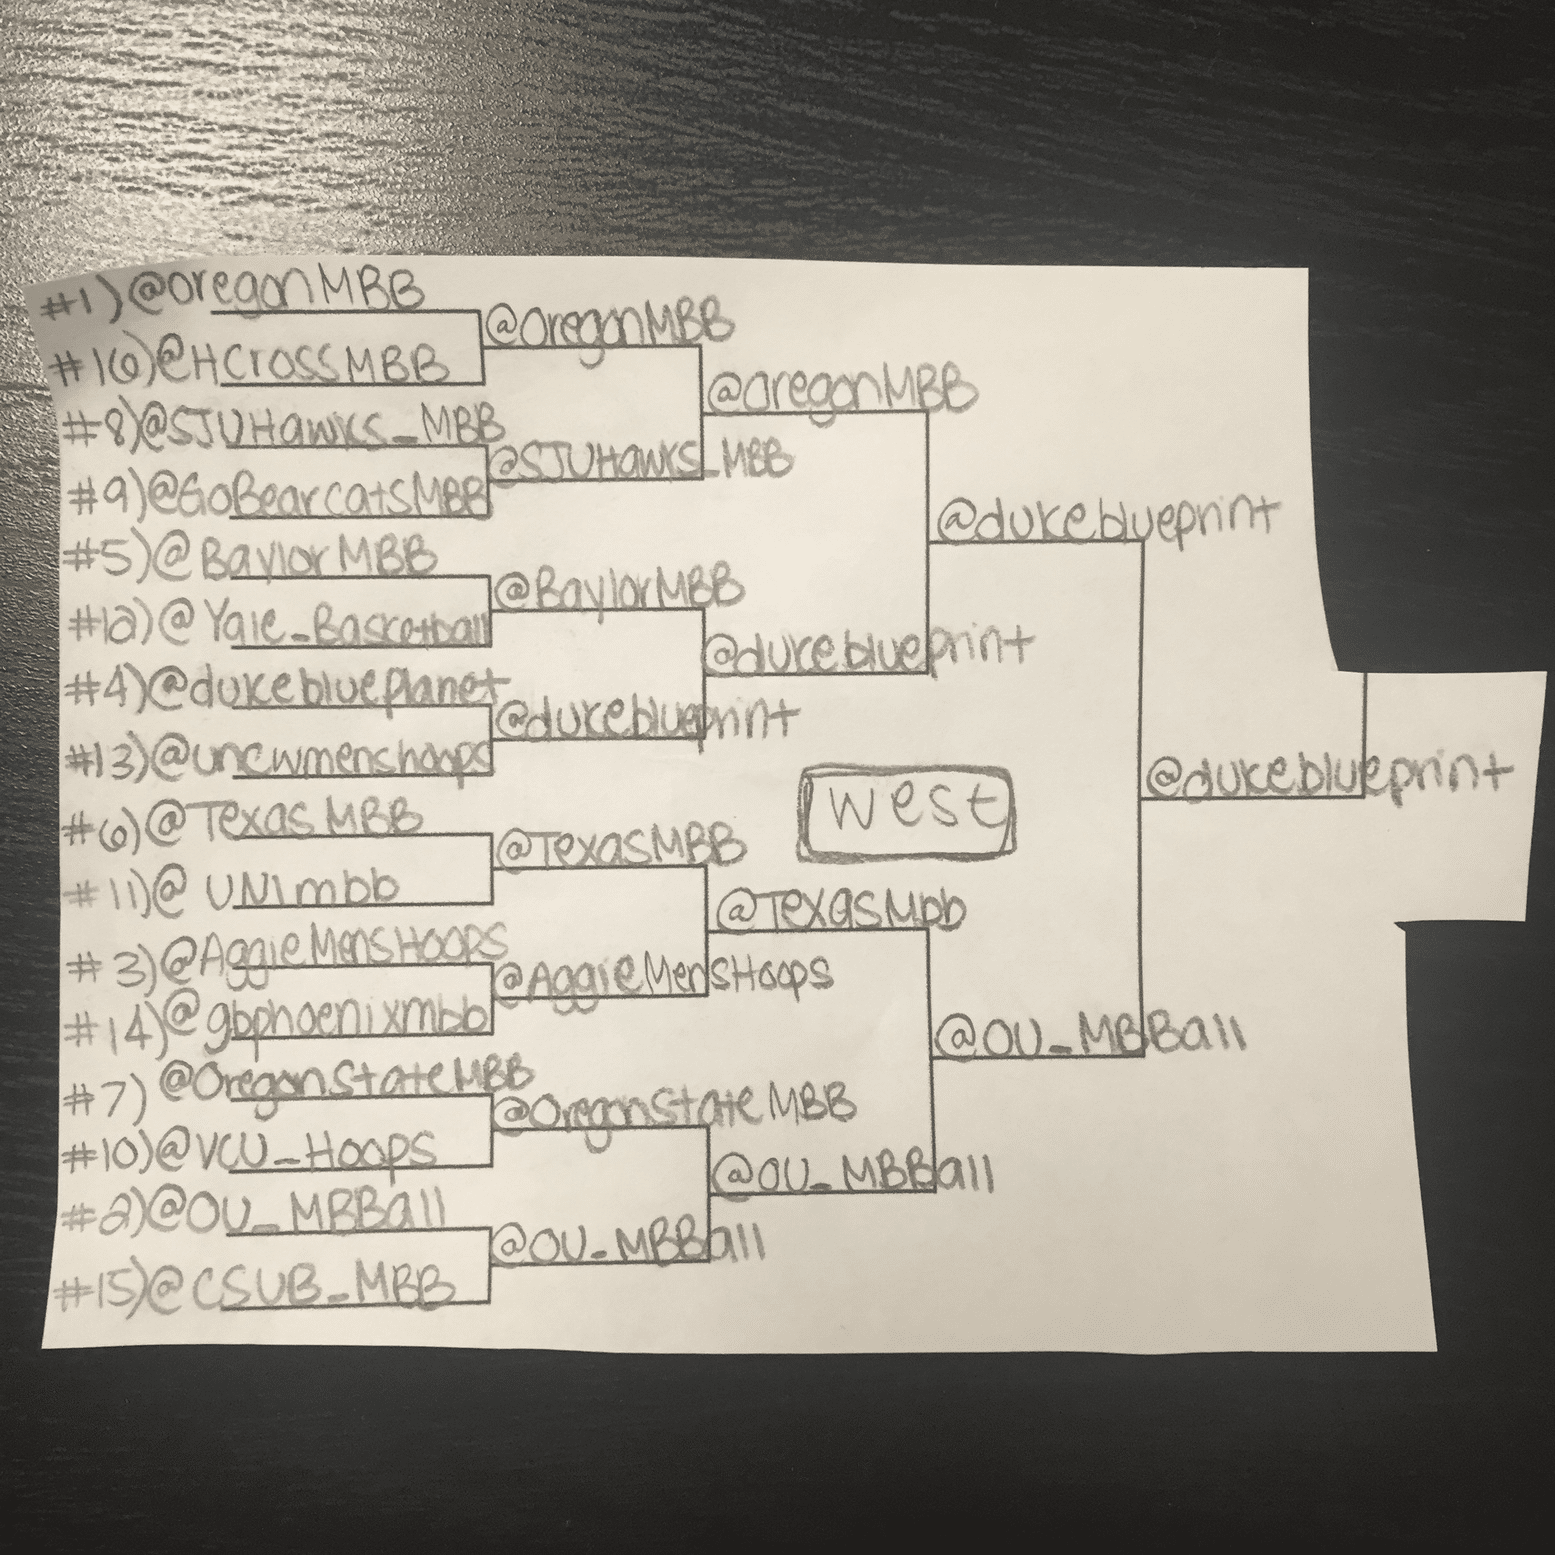 #1) @OregonMBB
#16) @HCrossMBB
#8) @SJUHawks_MBB
#9) @GoBearcatsMBB
#5) @BaylorMBB
#12) @Yale_Basketball
#4) @dukeblueplanet
#13) @uncwmenshoops
#6) @TexasMBB
#11) @UNImbb
#3) @AggieMensHoops
#14) @gbphoenixmbb
#7) @OregonStateMBB
#10) @VCU_Hoops
#2) @OU_MBBall
#15) @CSUB_MBB
@OregonMBB
@SJUHawks_MBB
@BaylorMBB
@dukeblueprint
@TexasMBB
@AggieMensHoops
@OregonStateMBB
@OU_MBBall
@OregonMBB
@dukeblueprint
@TexasMbb
@OU_MBBall
@dukeblueprint
@OU_MBBall
@dukeblueprint
West